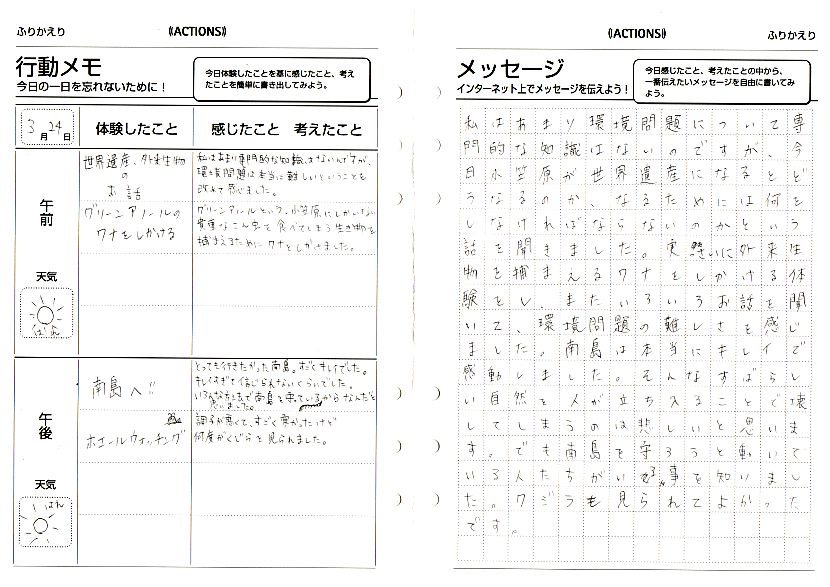 ふりかえり
《ACTIONS》
行動メモ
今日の一日を忘れないために！
今日体験したことを基に感じたこと、考え
たことを簡単に書き出してみよう。
3月24日
体験したこと
感じたこと 考えたこと
午前
天気
世界遺産、外来生物
の
お話
私はあまり専門的な知識はないんですが、
環境問題は本当に難しいということを
改めて感じました。
グリーンアノールの
ワナをしかける
グリーンアノールという、小笠原にしかいない
貴重なこん虫を食べてしまう生き物を
捕まえるためにワナをしかけました。
午後
天気
南島へ!!
とっても行きたかった南島。すごくキレイでした。
キレイすぎて信じられないくらいでした。
思いました。
ホエールウォッチング
調子が悪くて、すごく寒かったけど
何度かくじらを見られました。
《ACTIONS》
ふりかえり
メッセージ
インターネット上でメッセージを伝えよう！
今日感じたこと、考えたことの中から、
一番伝えたいメッセージを自由に書いてみ
よう。
私はあまり環境問題について専
門的な知識はないのですが、今
日小笠原が世界遺産になるとど
うなるのか、なるためには何を
しなければならないのかという
話を聞きました。実際に外来生
物を捕まえるワナをしかける体
験をし、またいろいろお話を聞
いて、環境問題の難しさを感じ
ました。南島は本当にキレイで
感動しました。そんなすばらし
い自然を人が立ち入ることで壊
してしまうのは悲しいと思いま
す。でも南島を守ろうと動いて
いる人たちがいる事を知りまし
た。クジラも見られてよかった
です。